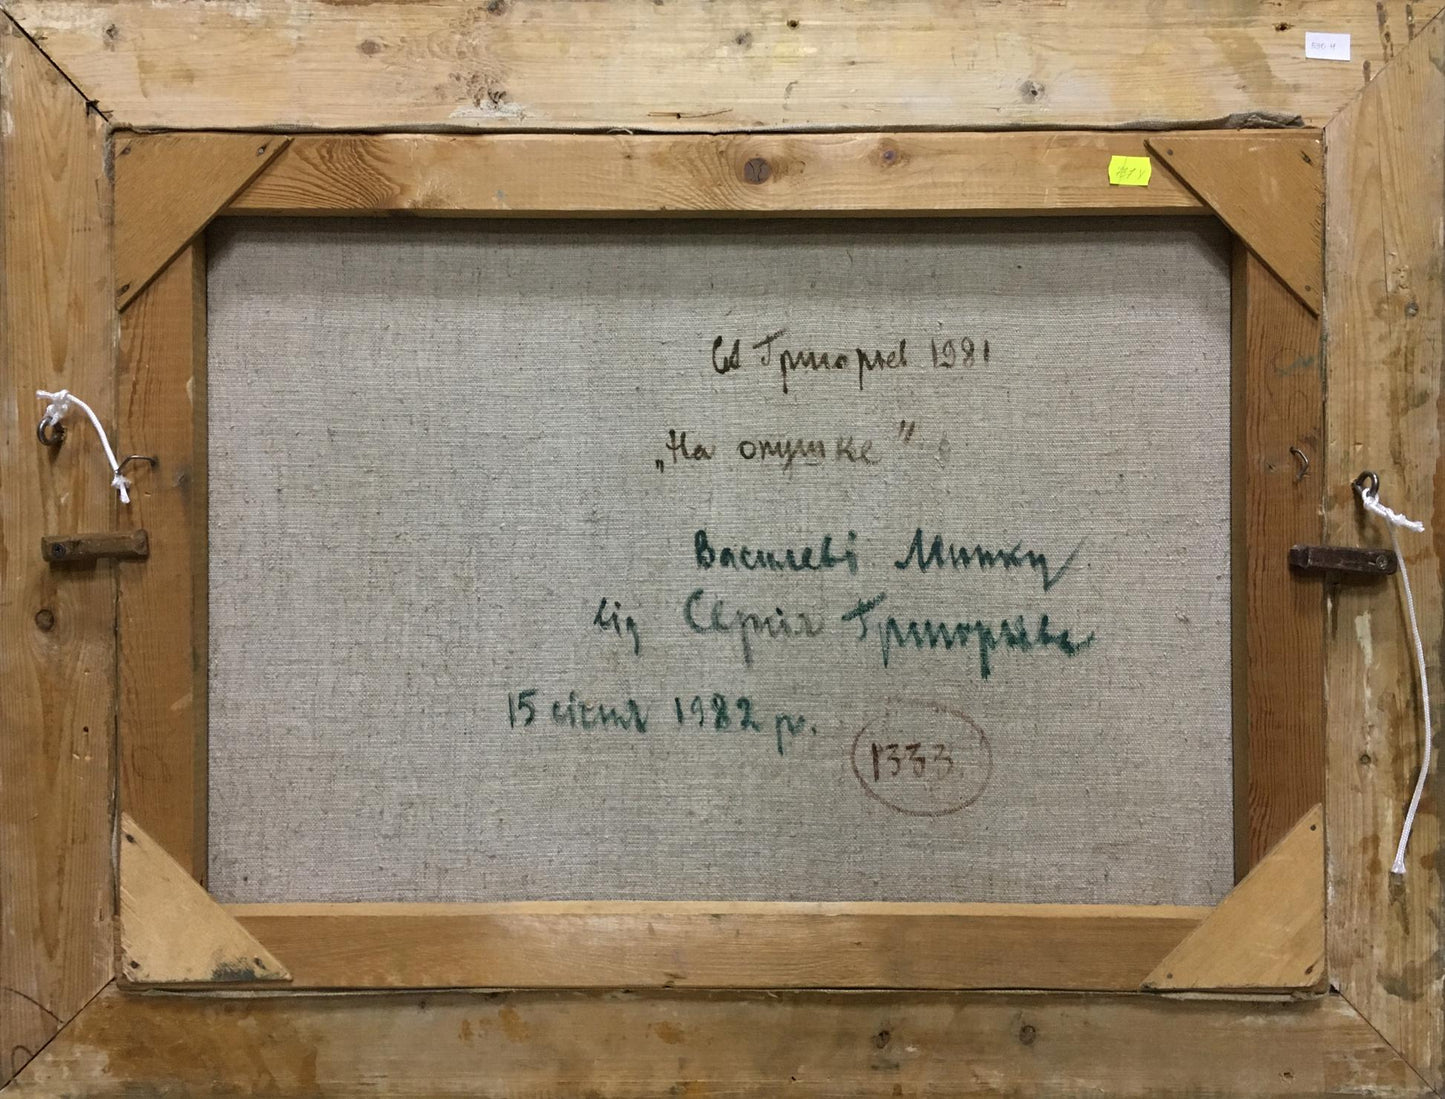 СА Григорьев 1981
„На опушке"
Василеві Минку
від Сергія Григорьева
15 січня 1982 р.
1333